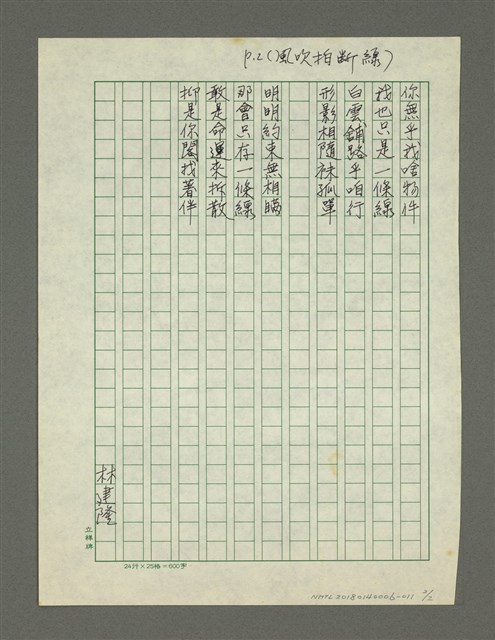 p.2(風吹拍斷線)
你無乎我啥物件
我也只是一條線
白雲鋪路乎咱行
形影相隨袂孤單
明明約束無相瞞
那會只存一條線
敢是命運來拆散
抑是你閣找著伴
林建隆
立稈牌
24行×25格=600字
NMTL20180140006-011 2/2